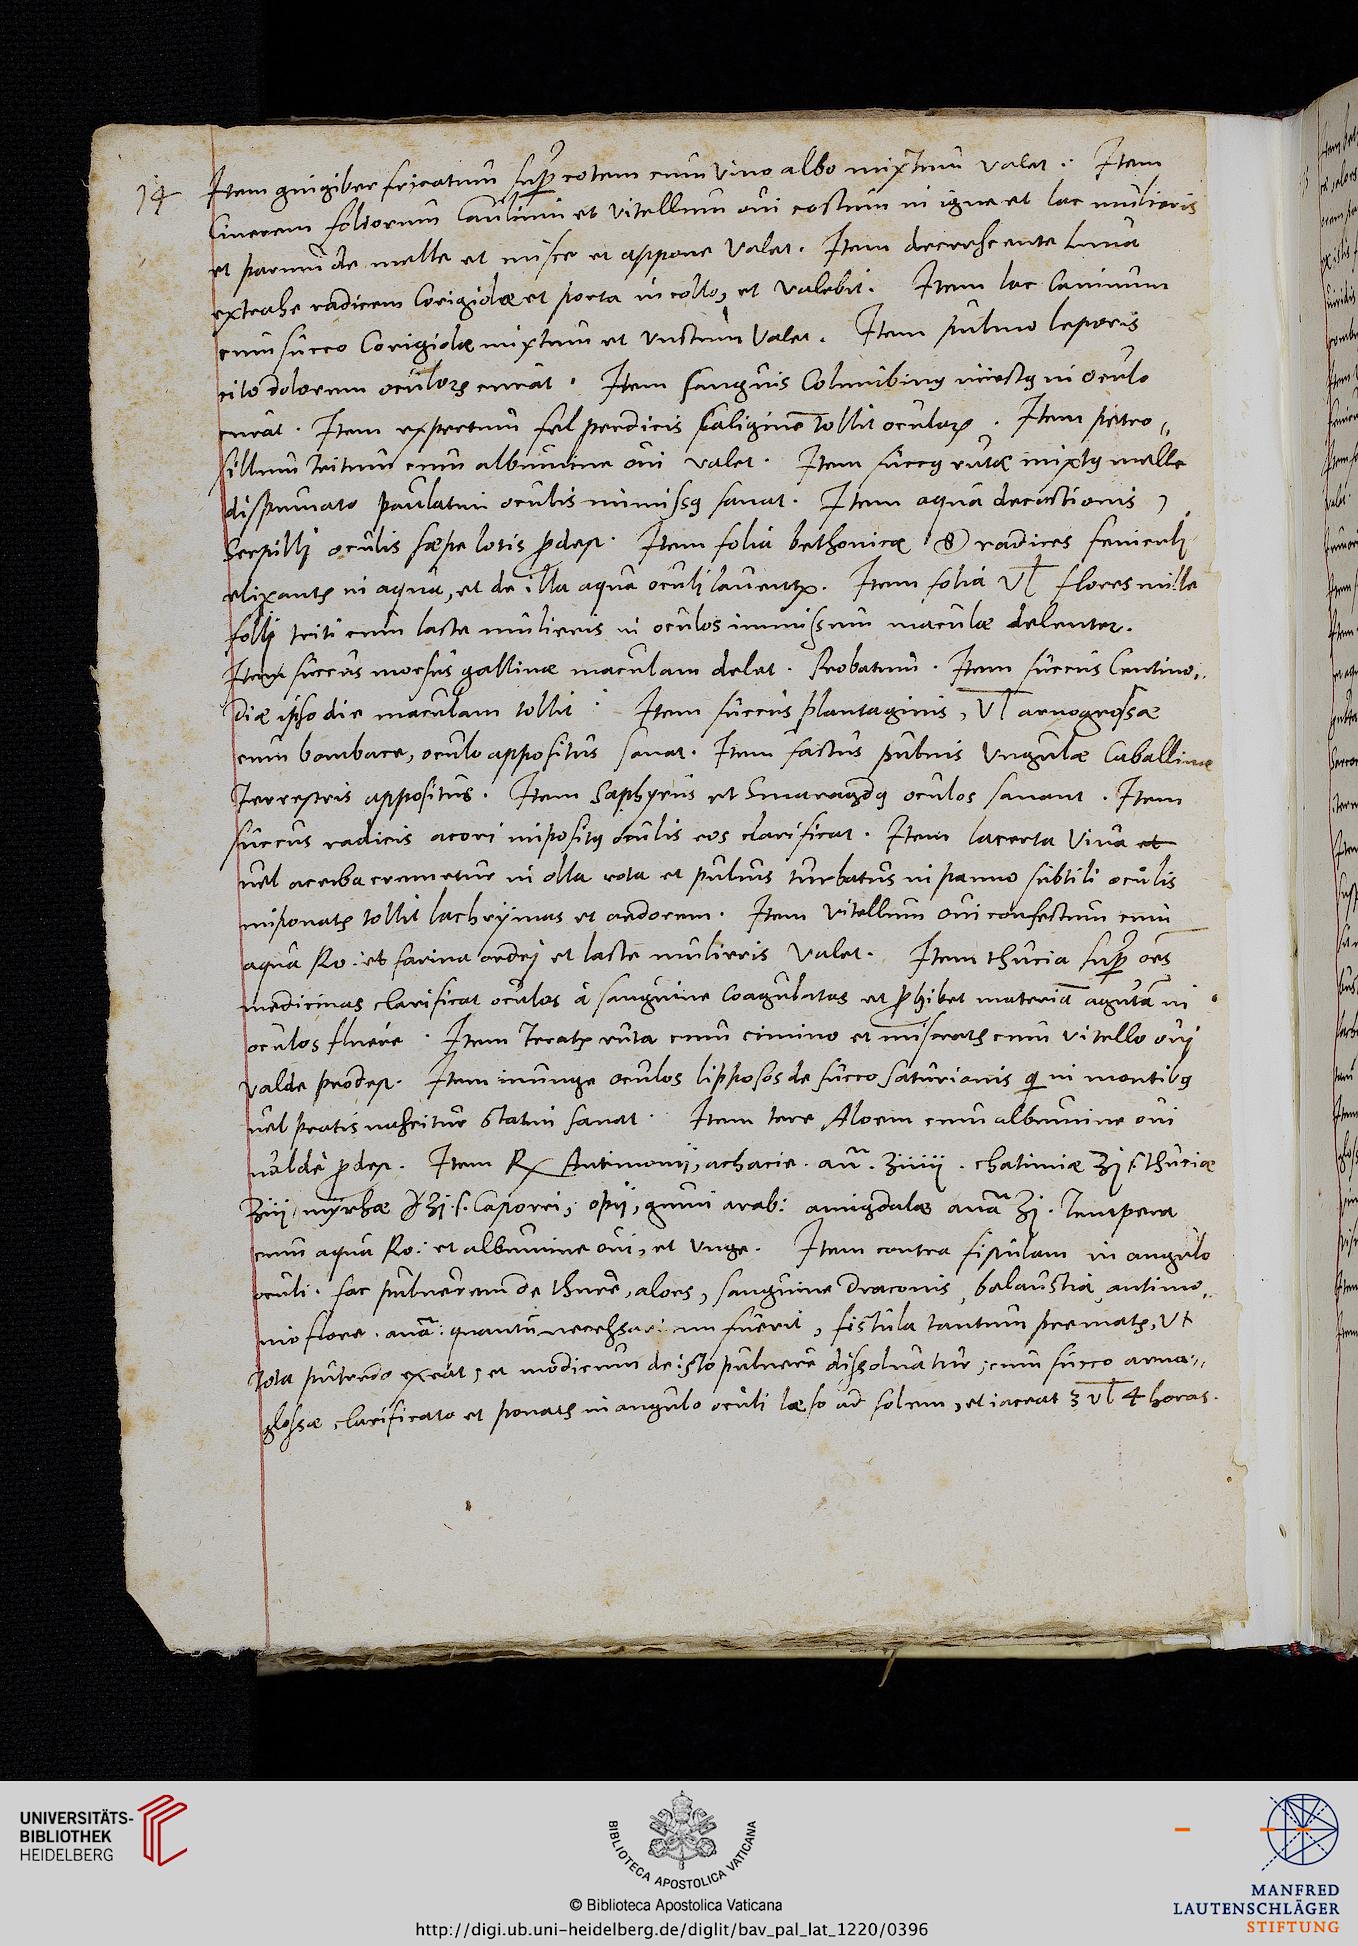 14
Item gingiber fricatum sup cotem cum vino albo mixtum valet. Item
Cinerem foliorum Caulium et vitellum oui coctum in igne et lac mulieris
et parum de melle et misce et appone valet. Item decrescente Luna
extrahe radicem Corigiolæ et porta in collo, et valebit. Item lac Caninum
cum succo Corigiolæ mixtum et vnctum valet. Item pulmo leporis
cito dolorem oculorꝫ curat. Item sanguis Columbinꝰ iniectꝰ in oculo
curat. Item expertum fel perdicis caliginē tollit oculorꝫ. Item petro„
sillum tritum cum albumine oui valet. Item succꝰ rutæ mixtꝰ melle
dispumato paulatim oculis inmissꝰ sanat. Item aqua decoctionis
Serpilli oculis sæpe lotis ꝓdest. Item folia bethonicæ & radices feniculi
elixantꝫ in aqua, et de illa aqua oculi lauentꝫ. Item folia vl flores mille
folij triti cum lacte mulieris in oculos immissum maculæ delentur.
Item succus morsus gallinæ maculam delet. Probatum. Item succus Centino„
diæ ipso die maculam tollit. Item succus plantaginis, vl arnoglossæ
cum bombace, oculo appositus sanat. Item factus puluis vngulæ Caballinæ
Terrestris appositus. Item Saphyrus et Smaragdꝰ oculos sanant. Item
succus radicis acori impositꝰ oculis eos clarificat. Item lacerta viua et
uel acerba cremetur in olla rota et puluis turbatus in panno subtili oculis
imponatꝫ tollit lachrÿmas et ardorem. Item vitellum oui confectum cum
aqua Ro: et farina ordej et lacte mulieris valet. Item thucia sup oēs
medicinas clarificat oculos à sanguine coagulatas et ꝓhibet materiā agutā in
oculos fluere. Item Teratꝫ ruta cum cimino et miscetꝫ cum vitello ouj
valde prodest. Item inunge oculos lipposos de succo saturionis q in montibꝰ
uel pratis nascitur statim sanat. Item tere Aloem cum albumine oui
ualdè ꝓdest. Item ℞ Antimonij, achacie. anā. ʒiiij. chatimiæ ʒj s. thuciæ
ʒiij, myrhæ ʒj. s. Caporei, opij, gumi arab: amigdalæ anā ʒj. Tempera
cum aqua Ro: et albumine oui, et vnge. Item contra fistulam in angulo
oculi. fac puluerem de thure, aloes, sanguine draconis, balaustia, antimo„
nio flore. anā: quantū necessarium fuerit, fistula tantum prematꝫ, vt
tota putredo exeat, et modicum de isto puluere dissoluatur, cum succo arna„
glossæ clarificato et ponatꝫ in angulo oculi læso ad solem, et iaceat 3 vl 4 horas.
UNIVERSITÄTS-
BIBLIOTHEK
HEIDELBERG
BIBLIOTECA APOSTOLICA VATICANA
© Biblioteca Apostolica Vaticana
http://digi.ub.uni-heidelberg.de/diglit/bav_pal_lat_1220/0396
MANFRED
LAUTENSCHLÄGER
STIFTUNG